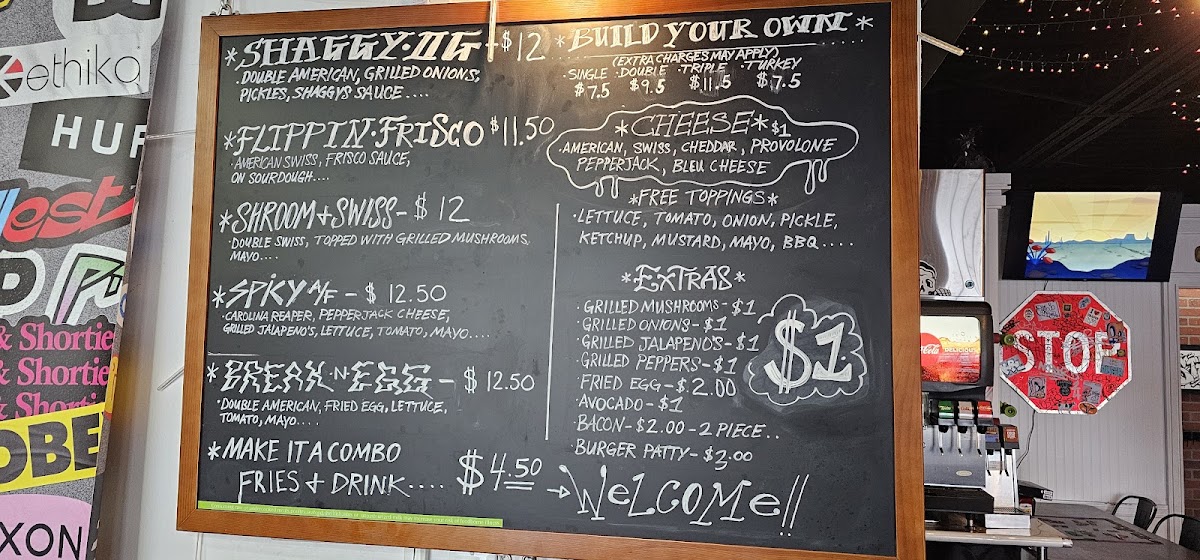 *SHAGGY·OG-$12
·DOUBLE AMERICAN, GRILLED ONIONS,
PICKLES, SHAGGYS SAUCE....
*FLIPPIN·FRISCO $11.50
·AMERICAN SWISS, FRISCO SAUCE,
ON SOURDOUGH....
*SHROOM+SWISS-$12
·DOUBLE SWISS, TOPPED WITH GRILLED MUSHROOMS,
MAYO....
*SPICY A/F - $12.50
·CAROLINA REAPER, PEPPERJACK CHEESE,
GRILLED JALAPENO'S, LETTUCE, TOMATO, MAYO....
*BREAK·N·EGG - $12.50
·DOUBLE AMERICAN, FRIED EGG, LETTUCE,
TOMATO, MAYO....
*MAKE IT A COMBO
FRIES + DRINK.... $4.50
*BUILD YOUR OWN*
(EXTRA CHARGES MAY APPLY)
·SINGLE ·DOUBLE ·TRIPLE ·TURKEY
$7.5 $9.5 $11.5 $7.5
*CHEESE* $1
·AMERICAN, SWISS, CHEDDAR, PROVOLONE
PEPPERJACK, BLEU CHEESE
*FREE TOPPINGS*
·LETTUCE, TOMATO, ONION, PICKLE,
KETCHUP, MUSTARD, MAYO, BBQ....
*EXTRAS*
·GRILLED MUSHROOMS-$1
·GRILLED ONIONS-$1
·GRILLED JALAPENO'S-$1
·GRILLED PEPPERS-$1
·FRIED EGG-$2.00
·AVOCADO-$1
·BACON-$2.00-2 PIECE..
·BURGER PATTY-$3.00
$1
WELCOME!!
ethika
HUF
est
& Shortie
& Shortie
& Shortie
OBE
XON
Coca-Cola
DELICIOUS
STOP